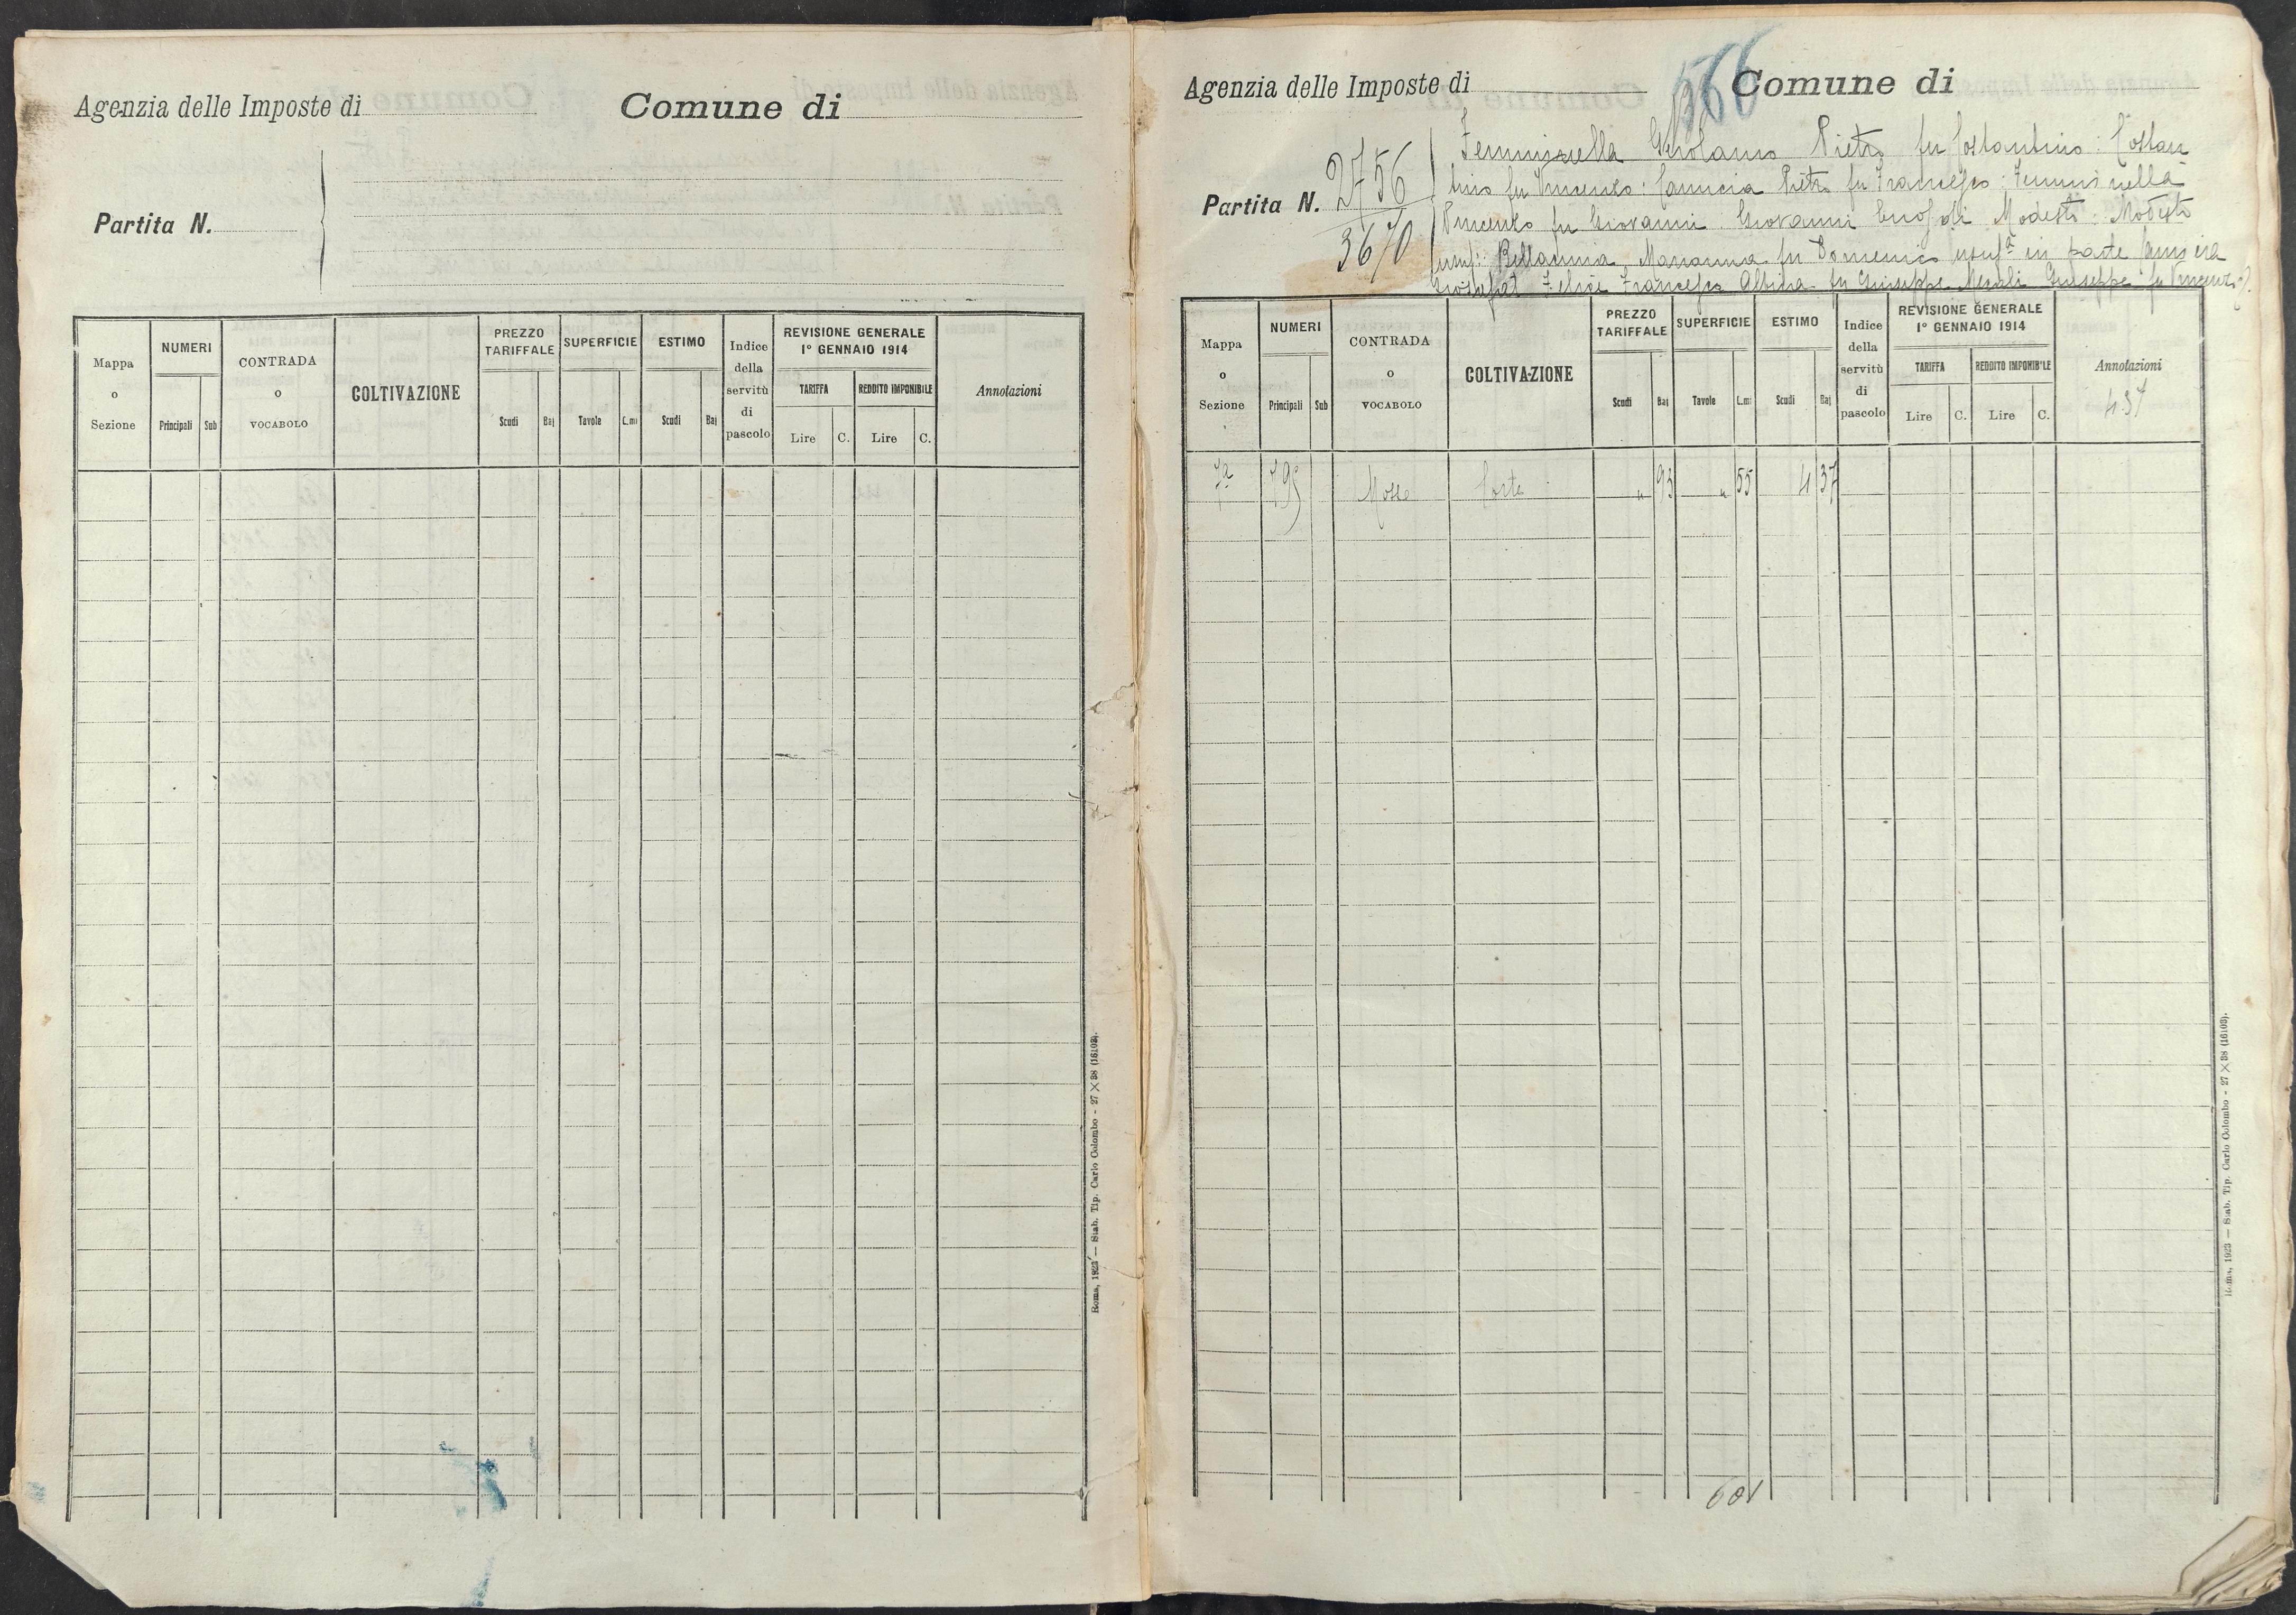 Agenzia delle Imposte di
Comune di
Partita N.
Mappa o Sezione
NUMERI
Principali
Sub
CONTRADA o VOCABOLO
COLTIVAZIONE
PREZZO TARIFFALE
Scudi
Baj
SUPERFICIE
Tavole
C.mi
ESTIMO
Scudi
Baj
Indice della servitù di pascolo
REVISIONE GENERALE 1° GENNAIO 1914
TARIFFA
REDDITO IMPONIBILE
Lire
C.
Lire
C.
Annotazioni
Roma, 1923 — Stab. Tip. Carlo Colombo - 27 × 38 (16103).
566
Agenzia delle Imposte di
Comune di
Partita N. 2756
3670
Femminella Girolamo Pietro fu Costantino: Costan
tino fu Vincenzo: Cannicia Pietro fu Francesco: Femminella
Vincenzo fu Giovanni. Giovanni di Modesto: Modesto
Marianna fu Domenico usuf.a in parte
Felice Francesco Albina fu Giuseppe Giuseppe fu Vincenzo
Mappa o Sezione
NUMERI
Principali
Sub
CONTRADA o VOCABOLO
COLTIVAZIONE
PREZZO TARIFFALE
Scudi
Baj
SUPERFICIE
Tavole
C.mi
ESTIMO
Scudi
Baj
Indice della servitù di pascolo
REVISIONE GENERALE 1° GENNAIO 1914
TARIFFA
REDDITO IMPONIBILE
Lire
C.
Lire
C.
Annotazioni
4.37
7a 795 Mole Corte " 93 " 55 4 37
601
Roma, 1923 — Stab. Tip. Carlo Colombo - 27 × 38 (16103).